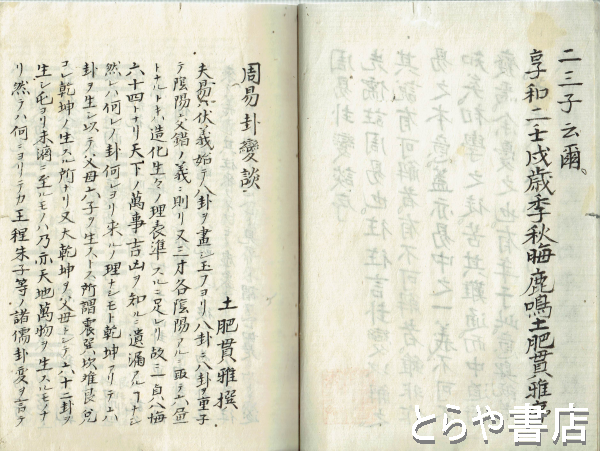 二三子云爾、
享和二壬戌歳季秋晦鹿鳴土肥貫雅
周易卦變談
土肥貫雅撰
夫易ハ伏羲始テ八卦ヲ畫シ玉フヨリ八卦ニ八卦ヲ重子
テ陰陽交錯ノ義ニ則リ又三才各陰陽アルニ取テ六畫
トナルトキハ造化生々ノ理表準スルニ足レリ故ニ一貞八悔
六十四トナリ天下ノ萬事吉凶ヲ知ルニ遺漏アルヿナシ
然レハ何レノ卦何レヨリ来ルノ理ナシモト乾坤アリテ六
卦ヲ生シ以テ父母六子ヲ生ストス所謂震巽坎離艮兌
コレ乾坤ノ生スル所ナリ又大乾坤ヲ父母トシテ六十二卦ヲ
生シ屯ヨリ未濟ニ至ルモノハ乃亦天地萬物ヲ生スルモノナ
リ然ラハ何ニヨリテカ王程朱子等ノ諸儒卦変ヲ言テ
とらや書店